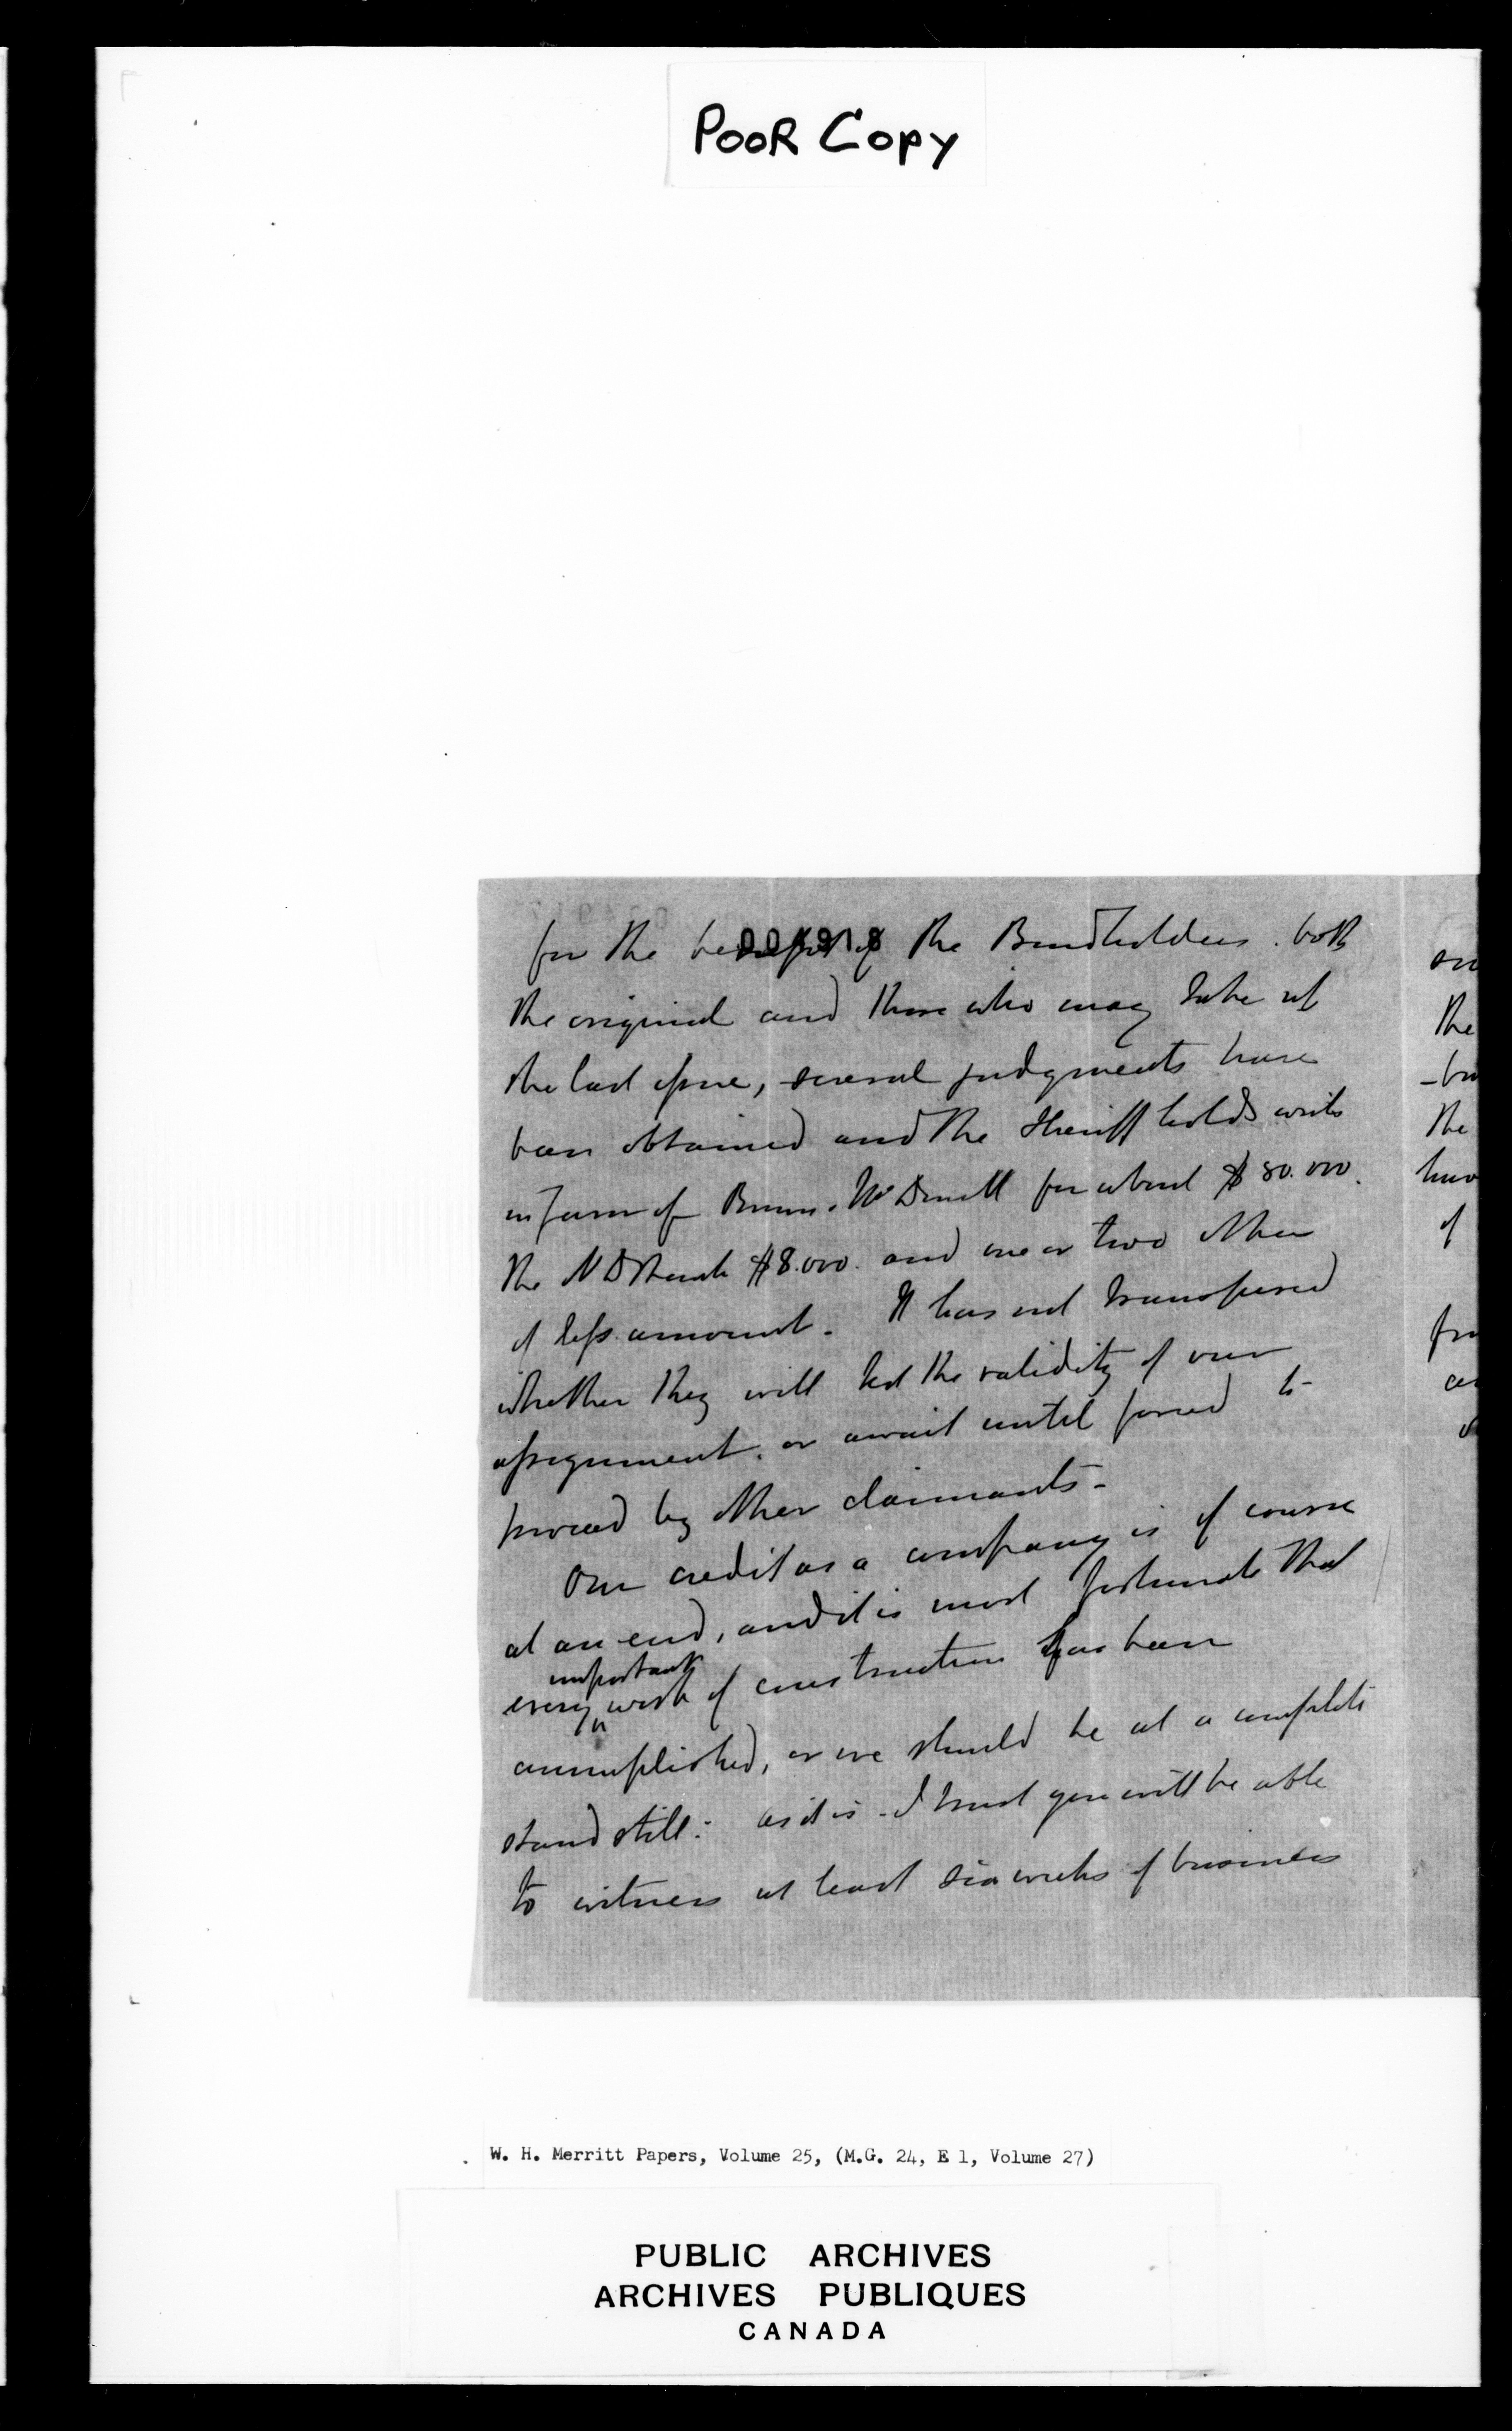 POOR COPY
004918
for the benefit of the Bondholders. both
the original and those who may take up
the last issue, several judgments have
been obtained and the Sheriff holds writs
in favor of McDonell for about $80.000.
the Bank $8.000. and one or two other
of less amount. It has not transpired
whether they will test the validity of our
assignment, or await until forced to
proceed by other claimants -
Our credit as a company is of course
at an end, and it is most fortunate that
important
every work of construction has been
accomplished, or we should be at a complete
stand still: as it is - I trust you will be able
to witness at least six weeks of business
the
the
of
W. H. Merritt Papers, Volume 25, (M.G. 24, E 1, Volume 27)
PUBLIC ARCHIVES
ARCHIVES PUBLIQUES
CANADA